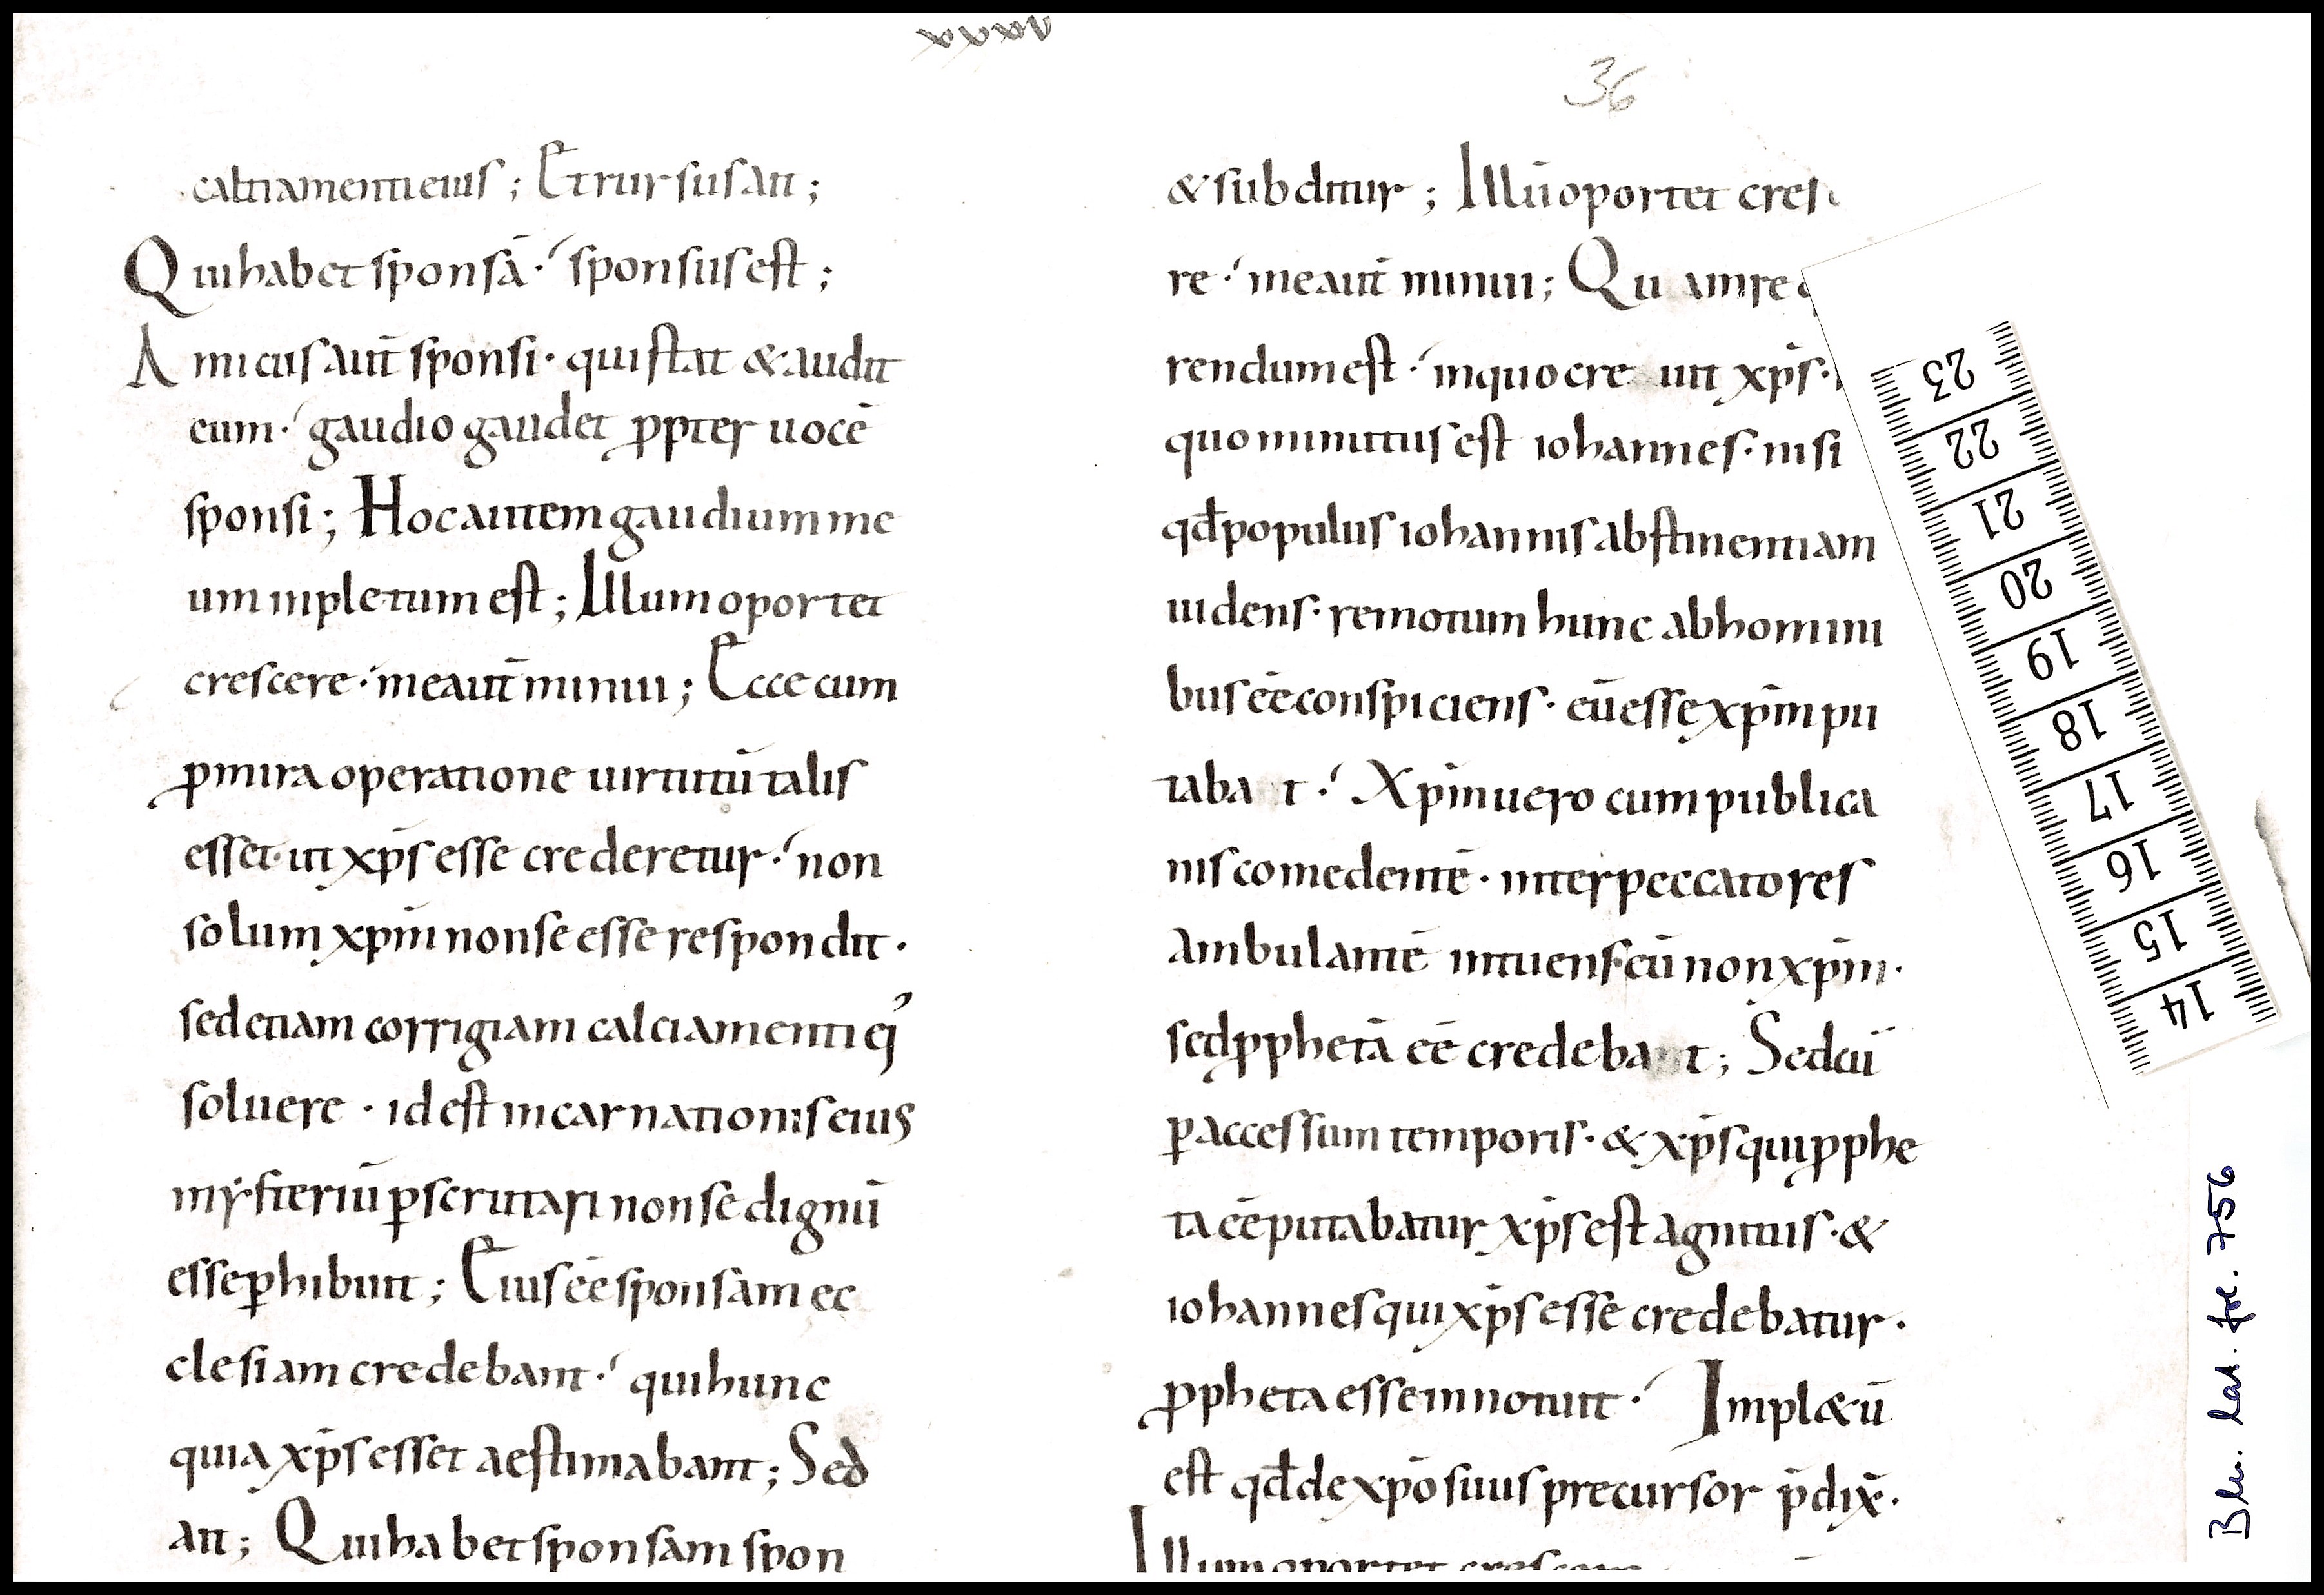 xxxv
36
caltiamenti eius; Et rursus ait;
Qui habet sponsā· sponsus est;
Amicus aut̄ sponsi· qui stat & audit
eum· gaudio gaudet ꝓpter uocē
sponsi; Hoc autem gaudium me
um inpletum est; Illum oportet
crescere· me aut̄ minui; Ecce cum
ꝓ mira operatione uirtutū talis
esset· ut xp̄s esse crederetur· non
solum xp̄m non se esse respondit·
sed etiam corrigiam calciamenti ei'
soluere· id est incarnationis eius
mẏsteriū ꝑscrutari non se dignū
esse ꝑhibuit; Eius eē sponsam ec
clesiam credebant· qui hunc
quia xp̄s esset aestimabant; Sed
ait; Qui habet sponsam spon
& subditur; Illū oportet cres
re· me aut̄ minui; Qu a in re
rendum est· in quo cre uit xp̄s·
quo minutus est iohannes· nisi
qđ populus iohannis abstinentiam
uidens· remotum hunc ab homini
bus eē conspiciens· eū esse xp̄m pu
taba t· Xp̄m uero cum publica
nis comedentē· inter peccatores
ambulantē intuens· eū non xp̄m·
sed ꝓphetā eē credebant; Sed cū
ꝑ accessum temporis· & xp̄s qui ꝓphe
ta eē putabatur xp̄s est agnitus· &
iohannes qui xp̄s esse credebatur·
ꝓpheta esse innotuit· Impl&ū
est qđ de xp̄o suus precursor p̄dix̄·
Illum oportet crescere
23
22
21
20
19
18
17
16
15
14
Blu. lat. fre. 756